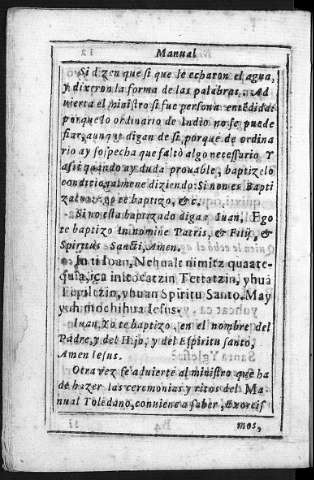 Manual
Si dizen que si que le echaron el agua,
y dixeron la forma de las palabras. Ad
uierta el ministro si fue persona entēdida
porque lo ordinario de Indio no se puede
fiar, aunque digan de si, porque de ordina
rio ay sospecha que faltò algo necessario Y
assi quando ay duda prouable, baptizelo
condicionalmente diziendo: Si non es Bapti
zatus, ego te baptizo, &c.
Si no esta baptizado diga: Iuan, Ego
te baptizo In nomine Patris, & Filij, &
Spiritus Sancti, Amen.
In ti Ioan, Nehualt nimitz quaate-
quia, ica initocatzin Tettatzin, yhuā
Tepiltzin, yhuan Spiritu Santo, May
yuh mochihua Iesus.
Iuan, Yo te baptizo, en el nombre del
Padre, y del Hijo, y del Espiritu santo,
Amen Iesus.
Otra vez se aduierte al ministro que ha
de hazer las ceremonias y ritos del Ma
nual Toledano, conuiene a saber, Exorcis
mos,